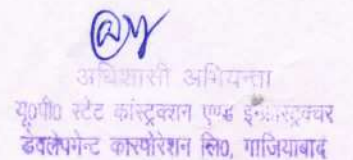 अधिशासी अभियन्ता
यू०पी० स्टेट कांस्ट्रक्शन एण्ड इन्फ्रास्ट्रक्चर
डेवलेपमेन्ट कारपोरेशन लि०, गाजियाबाद